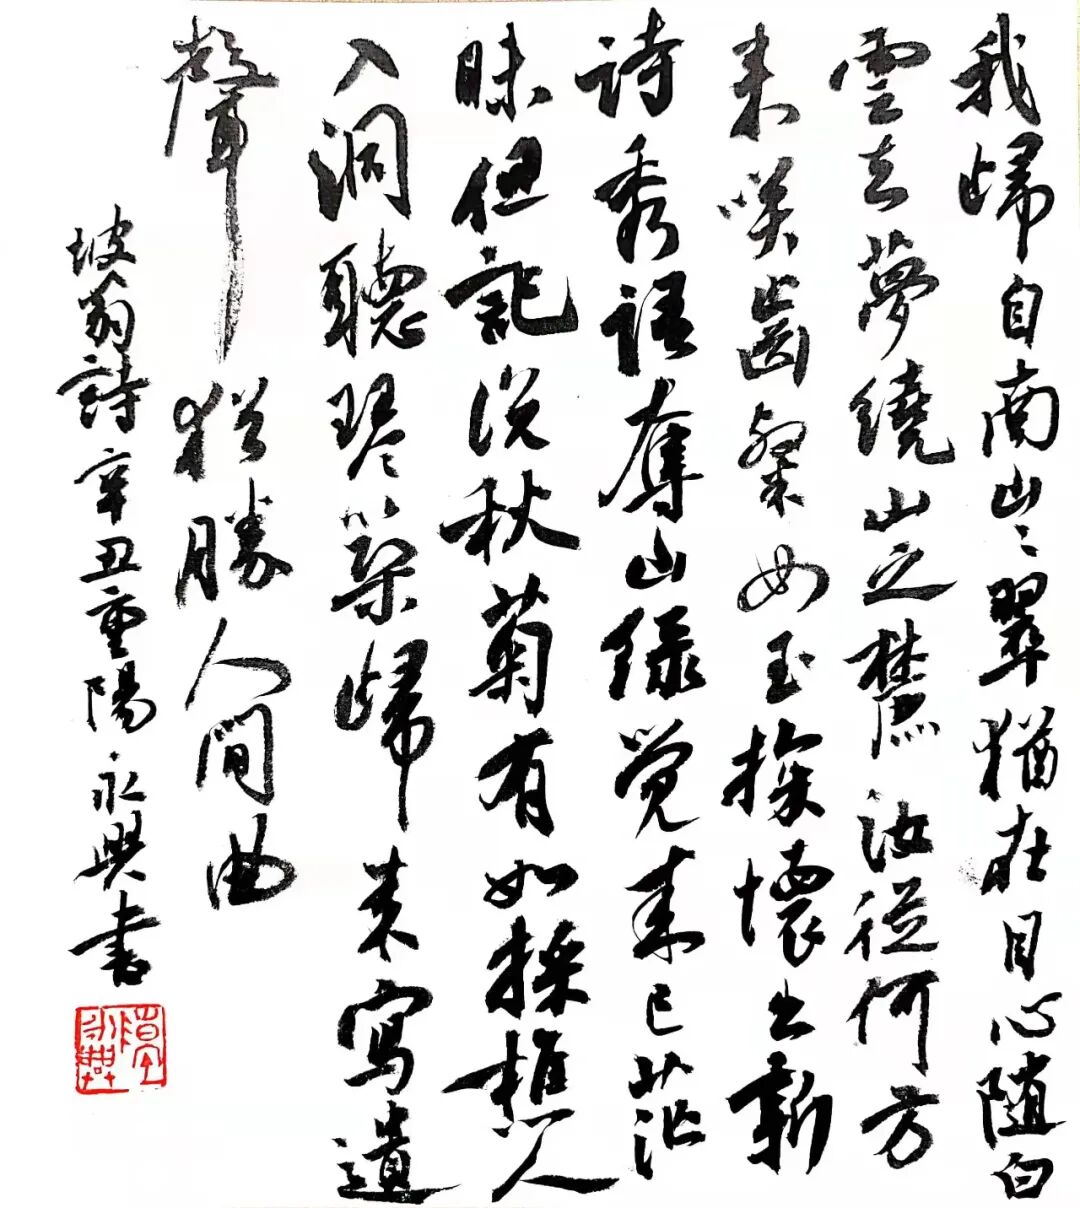 我歸自南山山翠猶在目心隨白
雲去夢繞山之麓汝從何方
来笑齒粲如玉探懷出新
詩秀語奪山綠覺来已茫
昧但記說秋菊有如採樵人
入洞聽琴築歸来寫遺
聲猶勝人間曲
坡翁詩辛丑重陽永興書